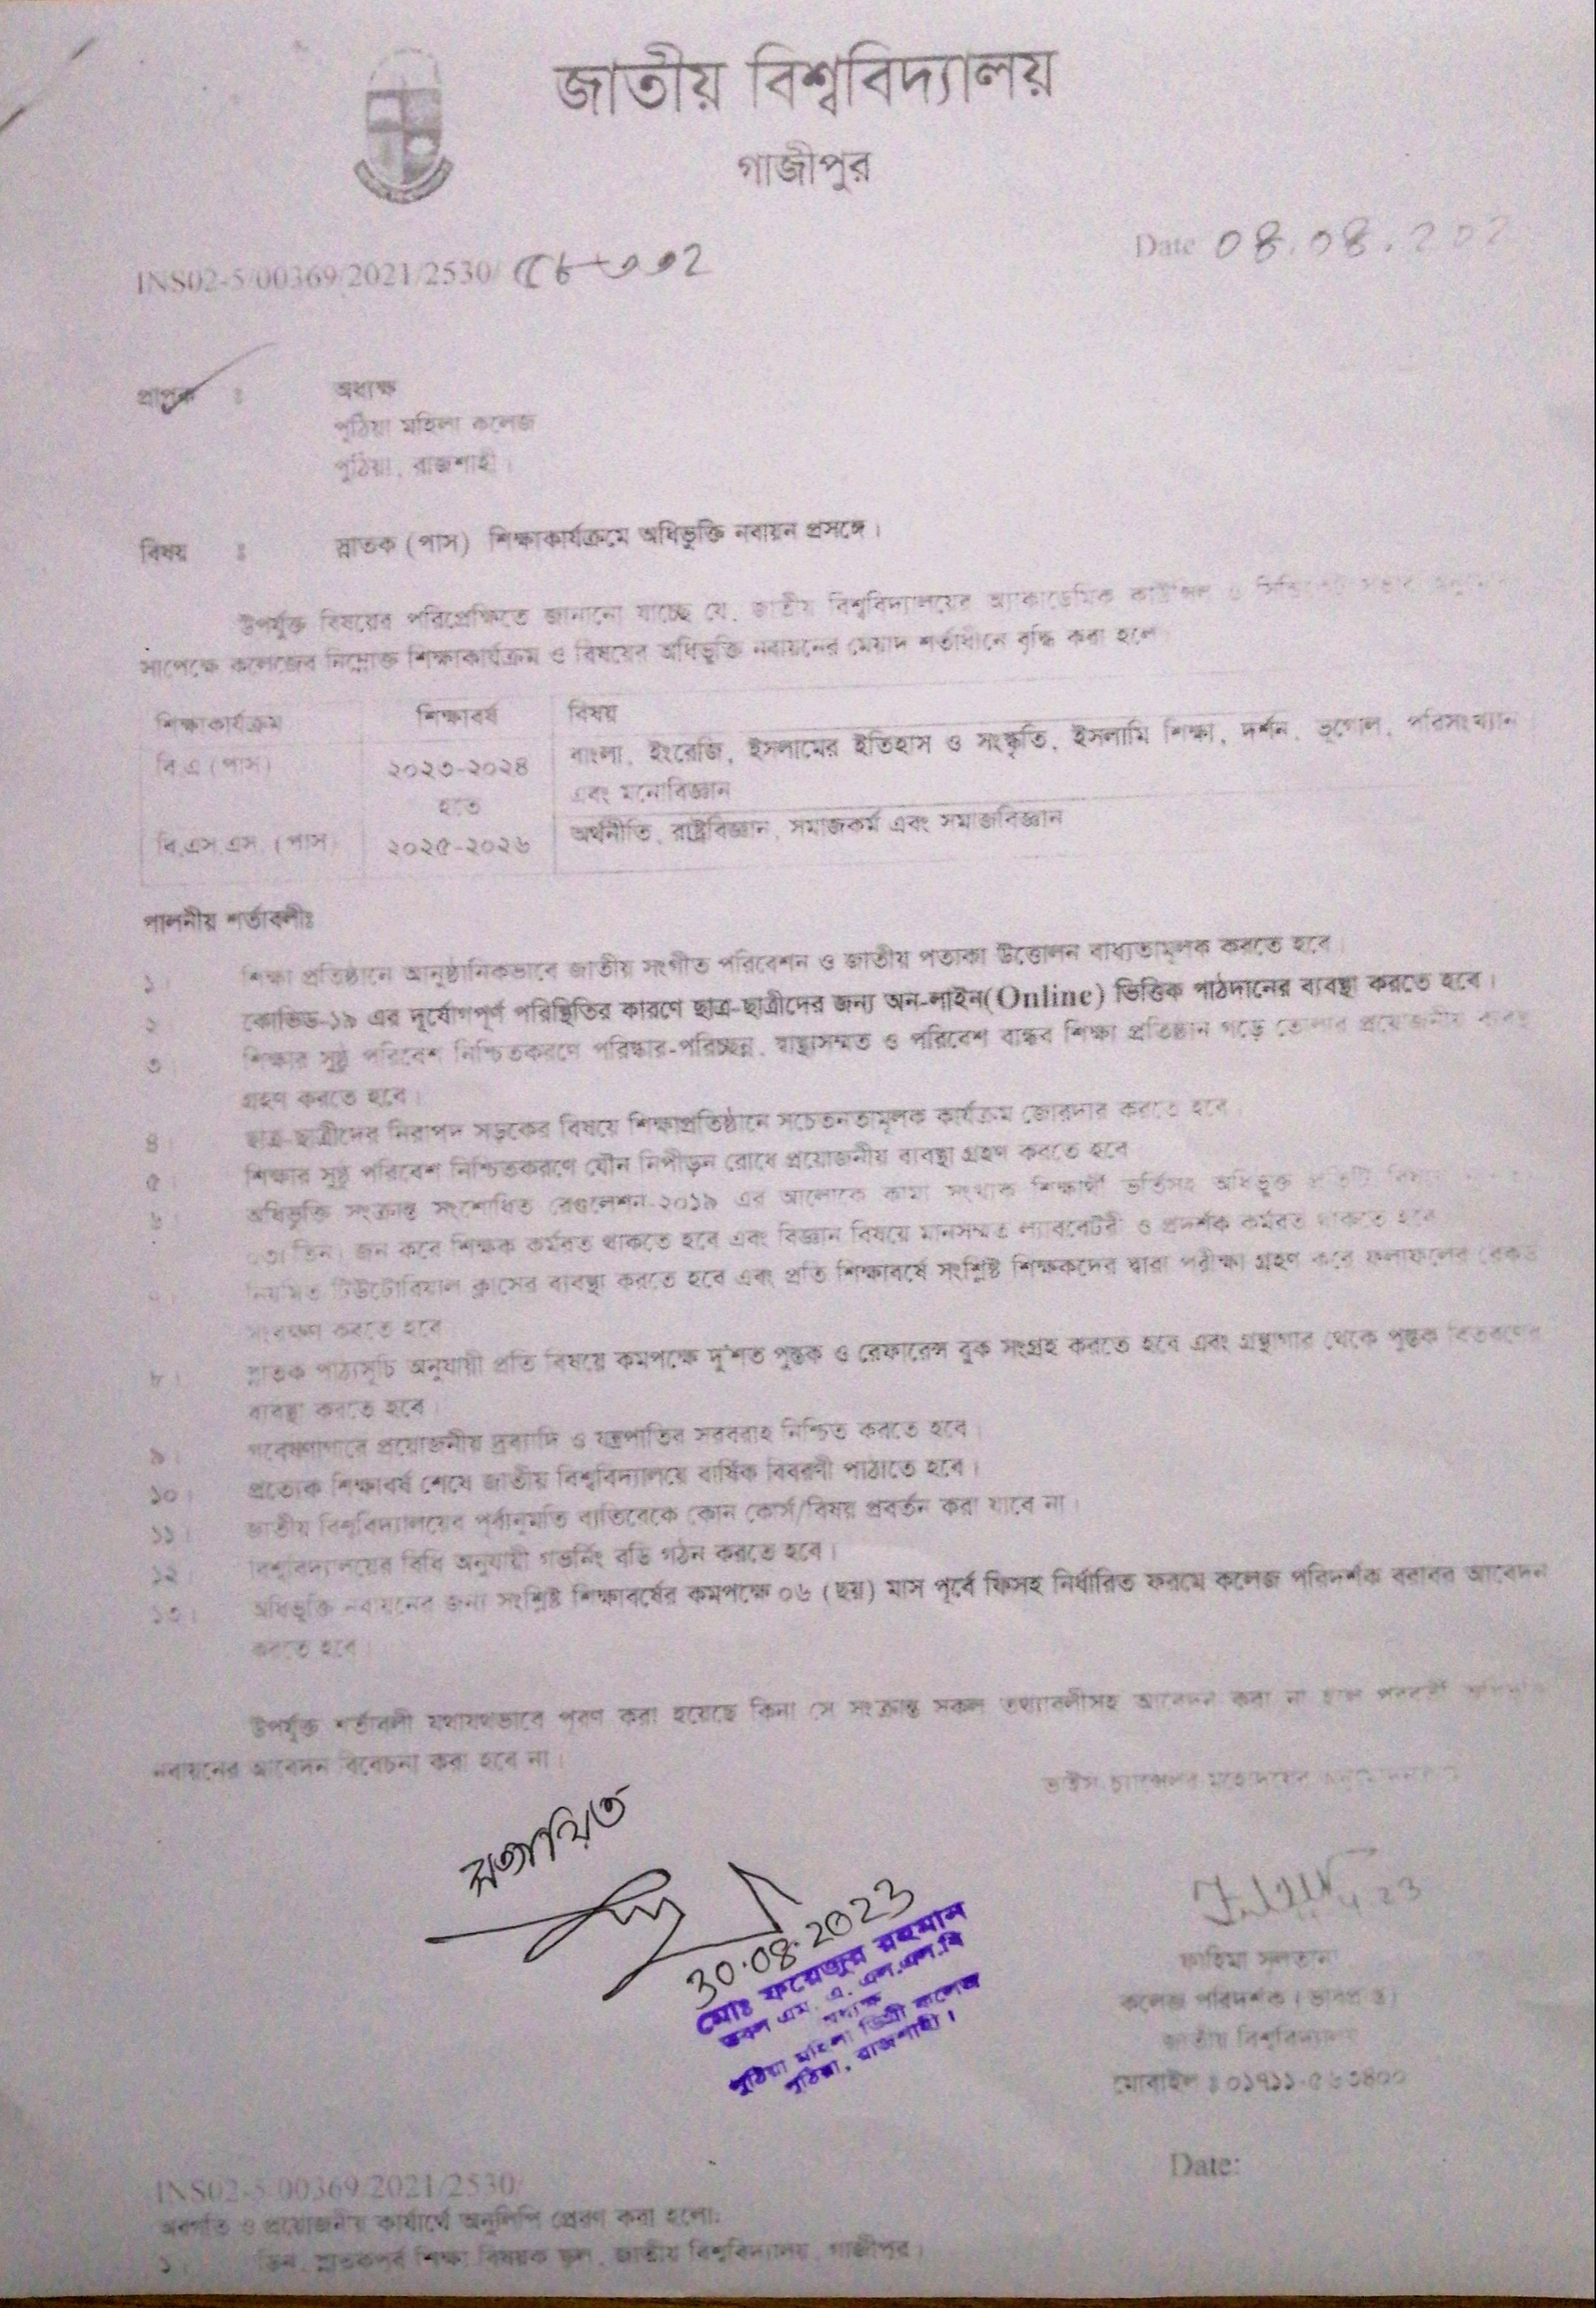 জাতীয় বিশ্ববিদ্যালয়
গাজীপুর
Date 08.08.202
INS02-5/00369/2021/2530/
প্রাপক :
অধ্যক্ষ
পুঠিয়া মহিলা কলেজ
পুঠিয়া, রাজশাহী।
বিষয় : স্নাতক (পাস) শিক্ষাকার্যক্রমে অধিভুক্তি নবায়ন প্রসঙ্গে।
উপর্যুক্ত বিষয়ের পরিপ্রেক্ষিতে জানানো যাচ্ছে যে, জাতীয় বিশ্ববিদ্যালয়ের অ্যাকাডেমিক
সাপেক্ষে কলেজের নিম্নোক্ত শিক্ষাকার্যক্রম ও বিষয়ের অধিভুক্তি নবায়নের মেয়াদ শর্তাধীনে বৃদ্ধি করা হলো
শিক্ষাকার্যক্রম শিক্ষাবর্ষ বিষয়
বি.এ (পাস) ২০২৩-২০২৪ বাংলা, ইংরেজি, ইসলামের ইতিহাস ও সংস্কৃতি, ইসলামি শিক্ষা, দর্শন, ভূগোল, পরিসংখ্যান
হতে এবং মনোবিজ্ঞান
বি.এস.এস. (পাস) ২০২৫-২০২৬ অর্থনীতি, রাষ্ট্রবিজ্ঞান, সমাজকর্ম এবং সমাজবিজ্ঞান
পালনীয় শর্তাবলীঃ
১। শিক্ষা প্রতিষ্ঠানে আনুষ্ঠানিকভাবে জাতীয় সংগীত পরিবেশন ও জাতীয় পতাকা উত্তোলন বাধ্যতামূলক করতে হবে।
২ কোভিড-১৯ এর দুর্যোগপূর্ণ পরিস্থিতির কারণে ছাত্র-ছাত্রীদের জন্য অন-লাইন(Online) ভিত্তিক পাঠদানের ব্যবস্থা করতে হবে।
৩ শিক্ষার সুষ্ঠু পরিবেশ নিশ্চিতকরণে পরিষ্কার-পরিচ্ছন্ন, স্বাস্থ্যসম্মত ও পরিবেশ বান্ধব শিক্ষা প্রতিষ্ঠান গড়ে তোলার প্রয়োজনীয়
গ্রহণ করতে হবে।
৪ ছাত্র-ছাত্রীদের নিরাপদ সড়কের বিষয়ে শিক্ষাপ্রতিষ্ঠানে সচেতনতামূলক কার্যক্রম জোরদার করতে হবে
৫। শিক্ষার সুষ্ঠু পরিবেশ নিশ্চিতকরণে যৌন নিপীড়ন রোধে প্রয়োজনীয় ব্যবস্থা গ্রহণ করতে হবে
৬ অধিভুক্তি সংক্রান্ত সংশোধিত রেগুলেশন-২০১৯ এর আলোকে কাম্য সংখ্যক শিক্ষার্থী ভর্তিসহ অধিভুক্ত প্রতিটি
জন করে শিক্ষক কর্মরত থাকতে হবে এবং বিজ্ঞান বিষয়ে মানসম্মত ল্যাবরেটরী ও প্রদর্শক কর্মরত থাকতে হবে
নিয়মিত টিউটোরিয়াল ক্লাসের ব্যবস্থা করতে হবে এবং প্রতি শিক্ষাবর্ষে সংশ্লিষ্ট শিক্ষকদের দ্বারা পরীক্ষা গ্রহণ করে ফলাফলের রেকর্ড
সংরক্ষণ করতে হবে
৮। স্নাতক পাঠ্যসূচি অনুযায়ী প্রতি বিষয়ে কমপক্ষে দু'শত পুস্তক ও রেফারেন্স বুক সংগ্রহ করতে হবে এবং গ্রন্থাগার থেকে পুস্তক বিতরণের
ব্যবস্থা করতে হবে।
৯। গবেষণাগারে প্রয়োজনীয় দ্রব্যাদি ও যন্ত্রপাতির সরবরাহ নিশ্চিত করতে হবে।
১০। প্রত্যেক শিক্ষাবর্ষ শেষে জাতীয় বিশ্ববিদ্যালয়ে বার্ষিক বিবরণী পাঠাতে হবে।
১১। জাতীয় বিশ্ববিদ্যালয়ের পূর্বানুমতি ব্যতিরেকে কোন কোর্স/বিষয় প্রবর্তন করা যাবে না।
১২। বিশ্ববিদ্যালয়ের বিধি অনুযায়ী গভর্নিং বডি গঠন করতে হবে।
১৩। অধিভুক্তি নবায়নের জন্য সংশ্লিষ্ট শিক্ষাবর্ষের কমপক্ষে ০৬ (ছয়) মাস পূর্বে ফিসহ নির্ধারিত ফরমে কলেজ পরিদর্শক বরাবর আবেদন
করতে হবে।
উপর্যুক্ত শর্তাবলী যথাযথভাবে পূরণ করা হয়েছে কিনা সে সংক্রান্ত সকল তথ্যাবলীসহ আবেদন করা না হলে পরবর্তী
নবায়নের আবেদন বিবেচনা করা হবে না।
সত্যায়িত
30.08.2023
মোঃ ফয়েজুর রহমান
ডবল এম. এ. এল.এল.বি
অধ্যক্ষ
পুঠিয়া মহিলা ডিগ্রী কলেজ
পুঠিয়া, রাজশাহী।
ফাহিমা সুলতানা
কলেজ পরিদর্শক (ভারপ্রাপ্ত)
জাতীয় বিশ্ববিদ্যালয়
মোবাইল : ০১৭১১-৫৬৩৪০০
INS02-5/00369/2021/2530/
Date:
অবগতি ও প্রয়োজনীয় কার্যার্থে অনুলিপি প্রেরণ করা হলো:
১। ডিন, স্নাতকপূর্ব শিক্ষা বিষয়ক স্কুল, জাতীয় বিশ্ববিদ্যালয়, গাজীপুর।